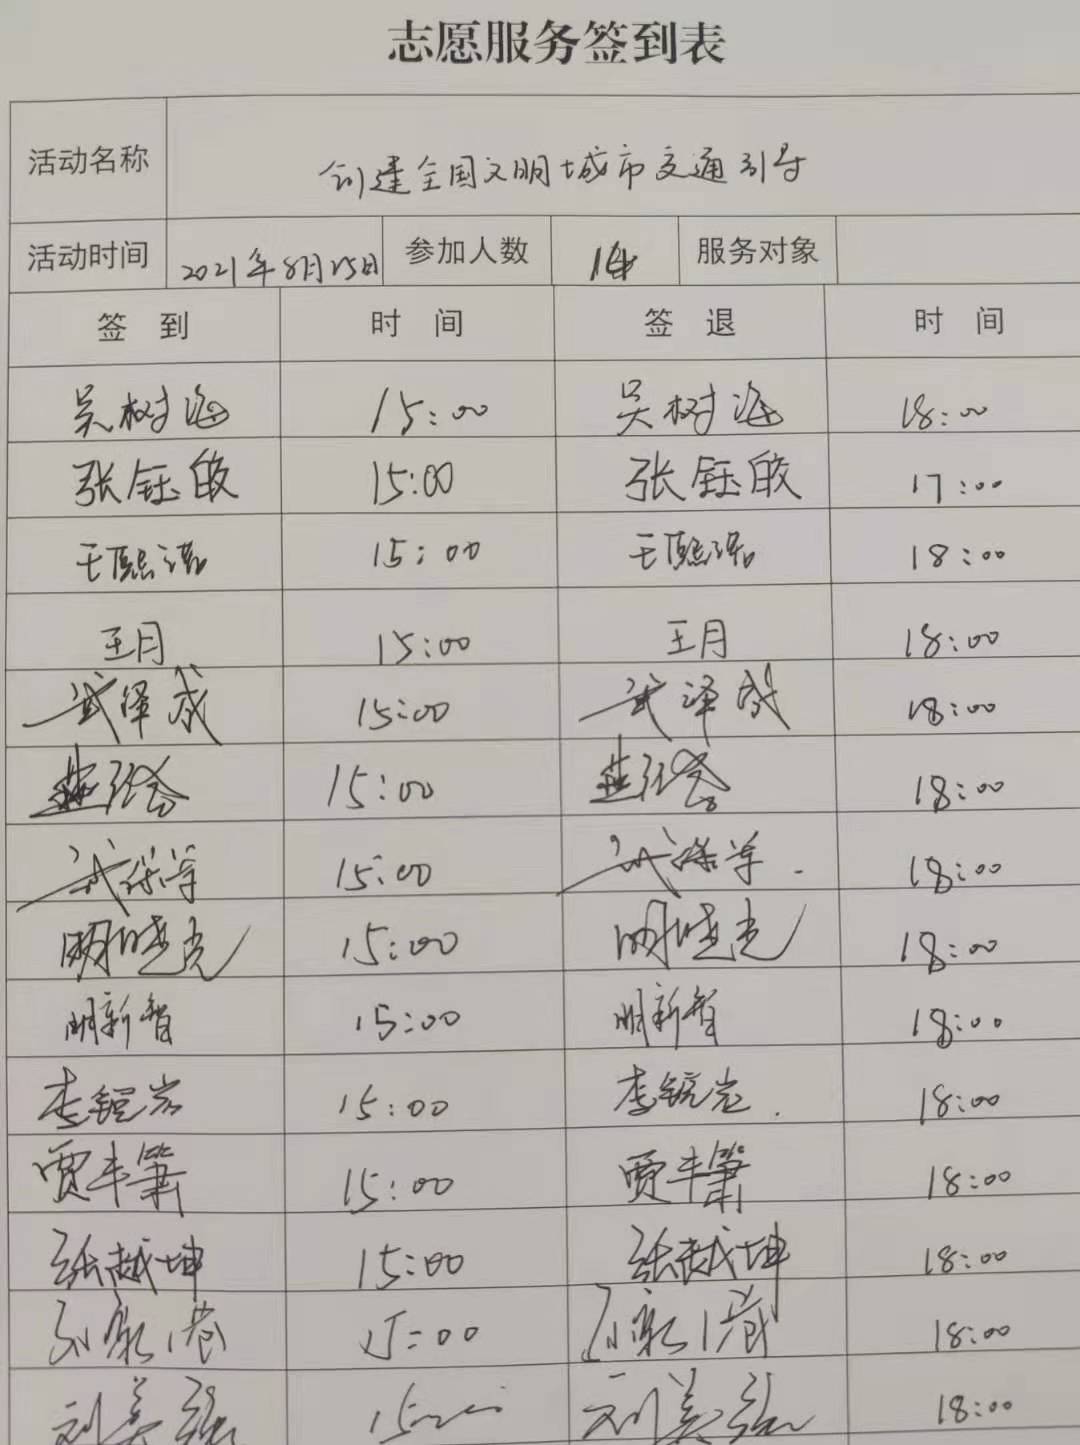 志愿服务签到表
活动名称 创建全国文明城市交通引导
活动时间 2021年8月25日 参加人数 14 服务对象
签 到 时 间 签 退 时 间
吴树海 15:00 吴树海 18:00
张钰皎 15:00 张钰皎 17:00
王熙诺 15:00 王熙诺 18:00
王月 15:00 王月 18:00
武泽成 15:00 武泽成 18:00
15:00 18:00
武保学 15:00 武保学 18:00
明晓光 15:00 明晓光 18:00
明新智 15:00 明新智 18:00
李锐岩 15:00 李锐岩 18:00
贾丰箫 15:00 贾丰箫 18:00
张越坤 15:00 张越坤 18:00
15:00 18:00
刘美强 15:00 刘美强 18:00